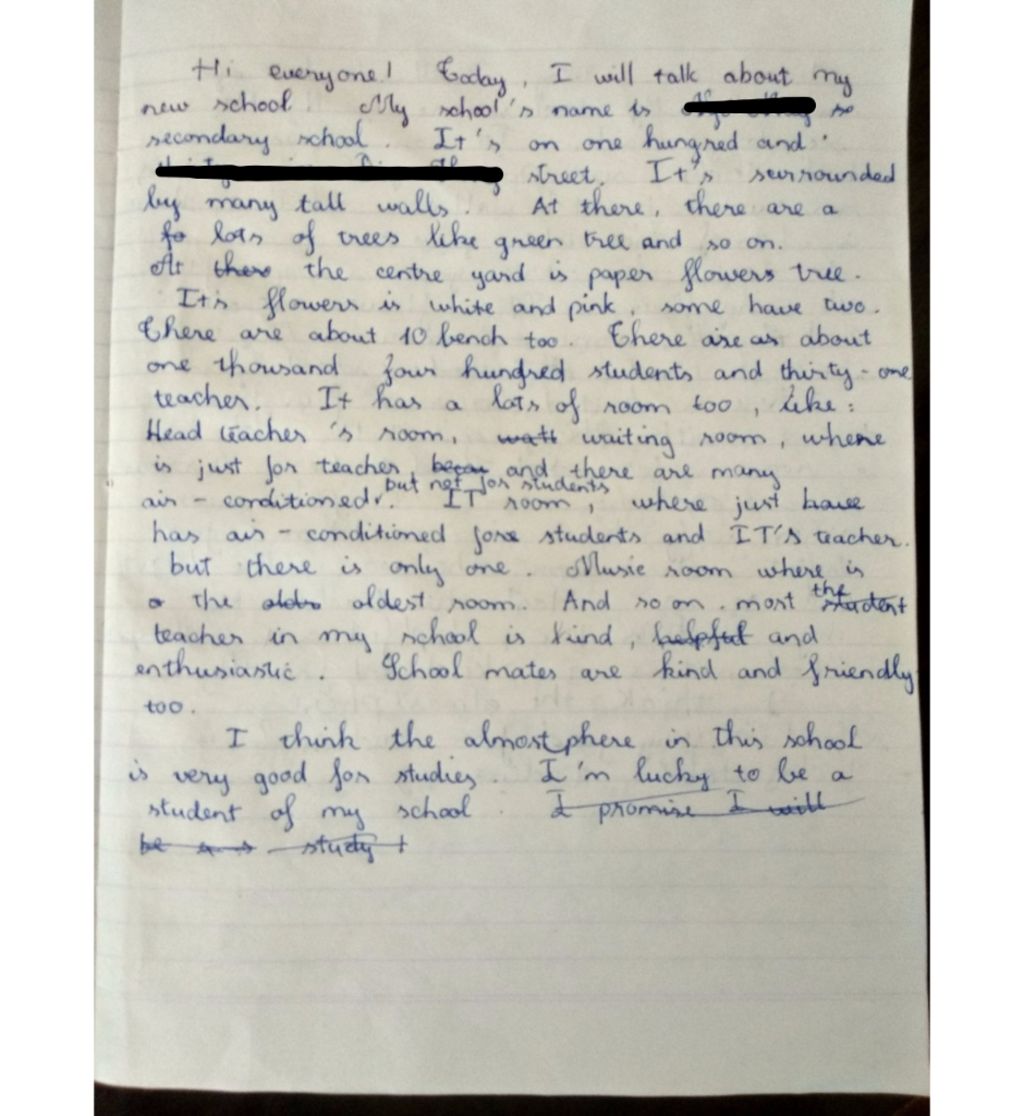 Hi everyone! Today, I will talk about my
new school. My school's name is so
secondary school. It's on one hungred and
street. It's surrounded
by many tall walls. At there, there are a
fo lots of trees like green tree and so on.
At there the centre yard is paper flowers tree.
It's flowers is white and pink, some have two.
There are about 10 bench too. There are as about
one thousand four hundred students and thirty-one
teacher. It has a lots of room too, like:
Head teacher's room, watt waiting room, where
is just for teacher, becau and there are many
but not for students
air-conditioned. IT room, where just have
has air-conditioned fore students and IT's teacher.
but there is only one. Music room where is
the oldest room. And so on. most the student
teacher in my school is kind, helpful and
enthusiastic. School mates are kind and friendly
too.
I think the almostphere in this school
is very good for studies. I'm lucky to be a
student of my school. I promise I will
be study